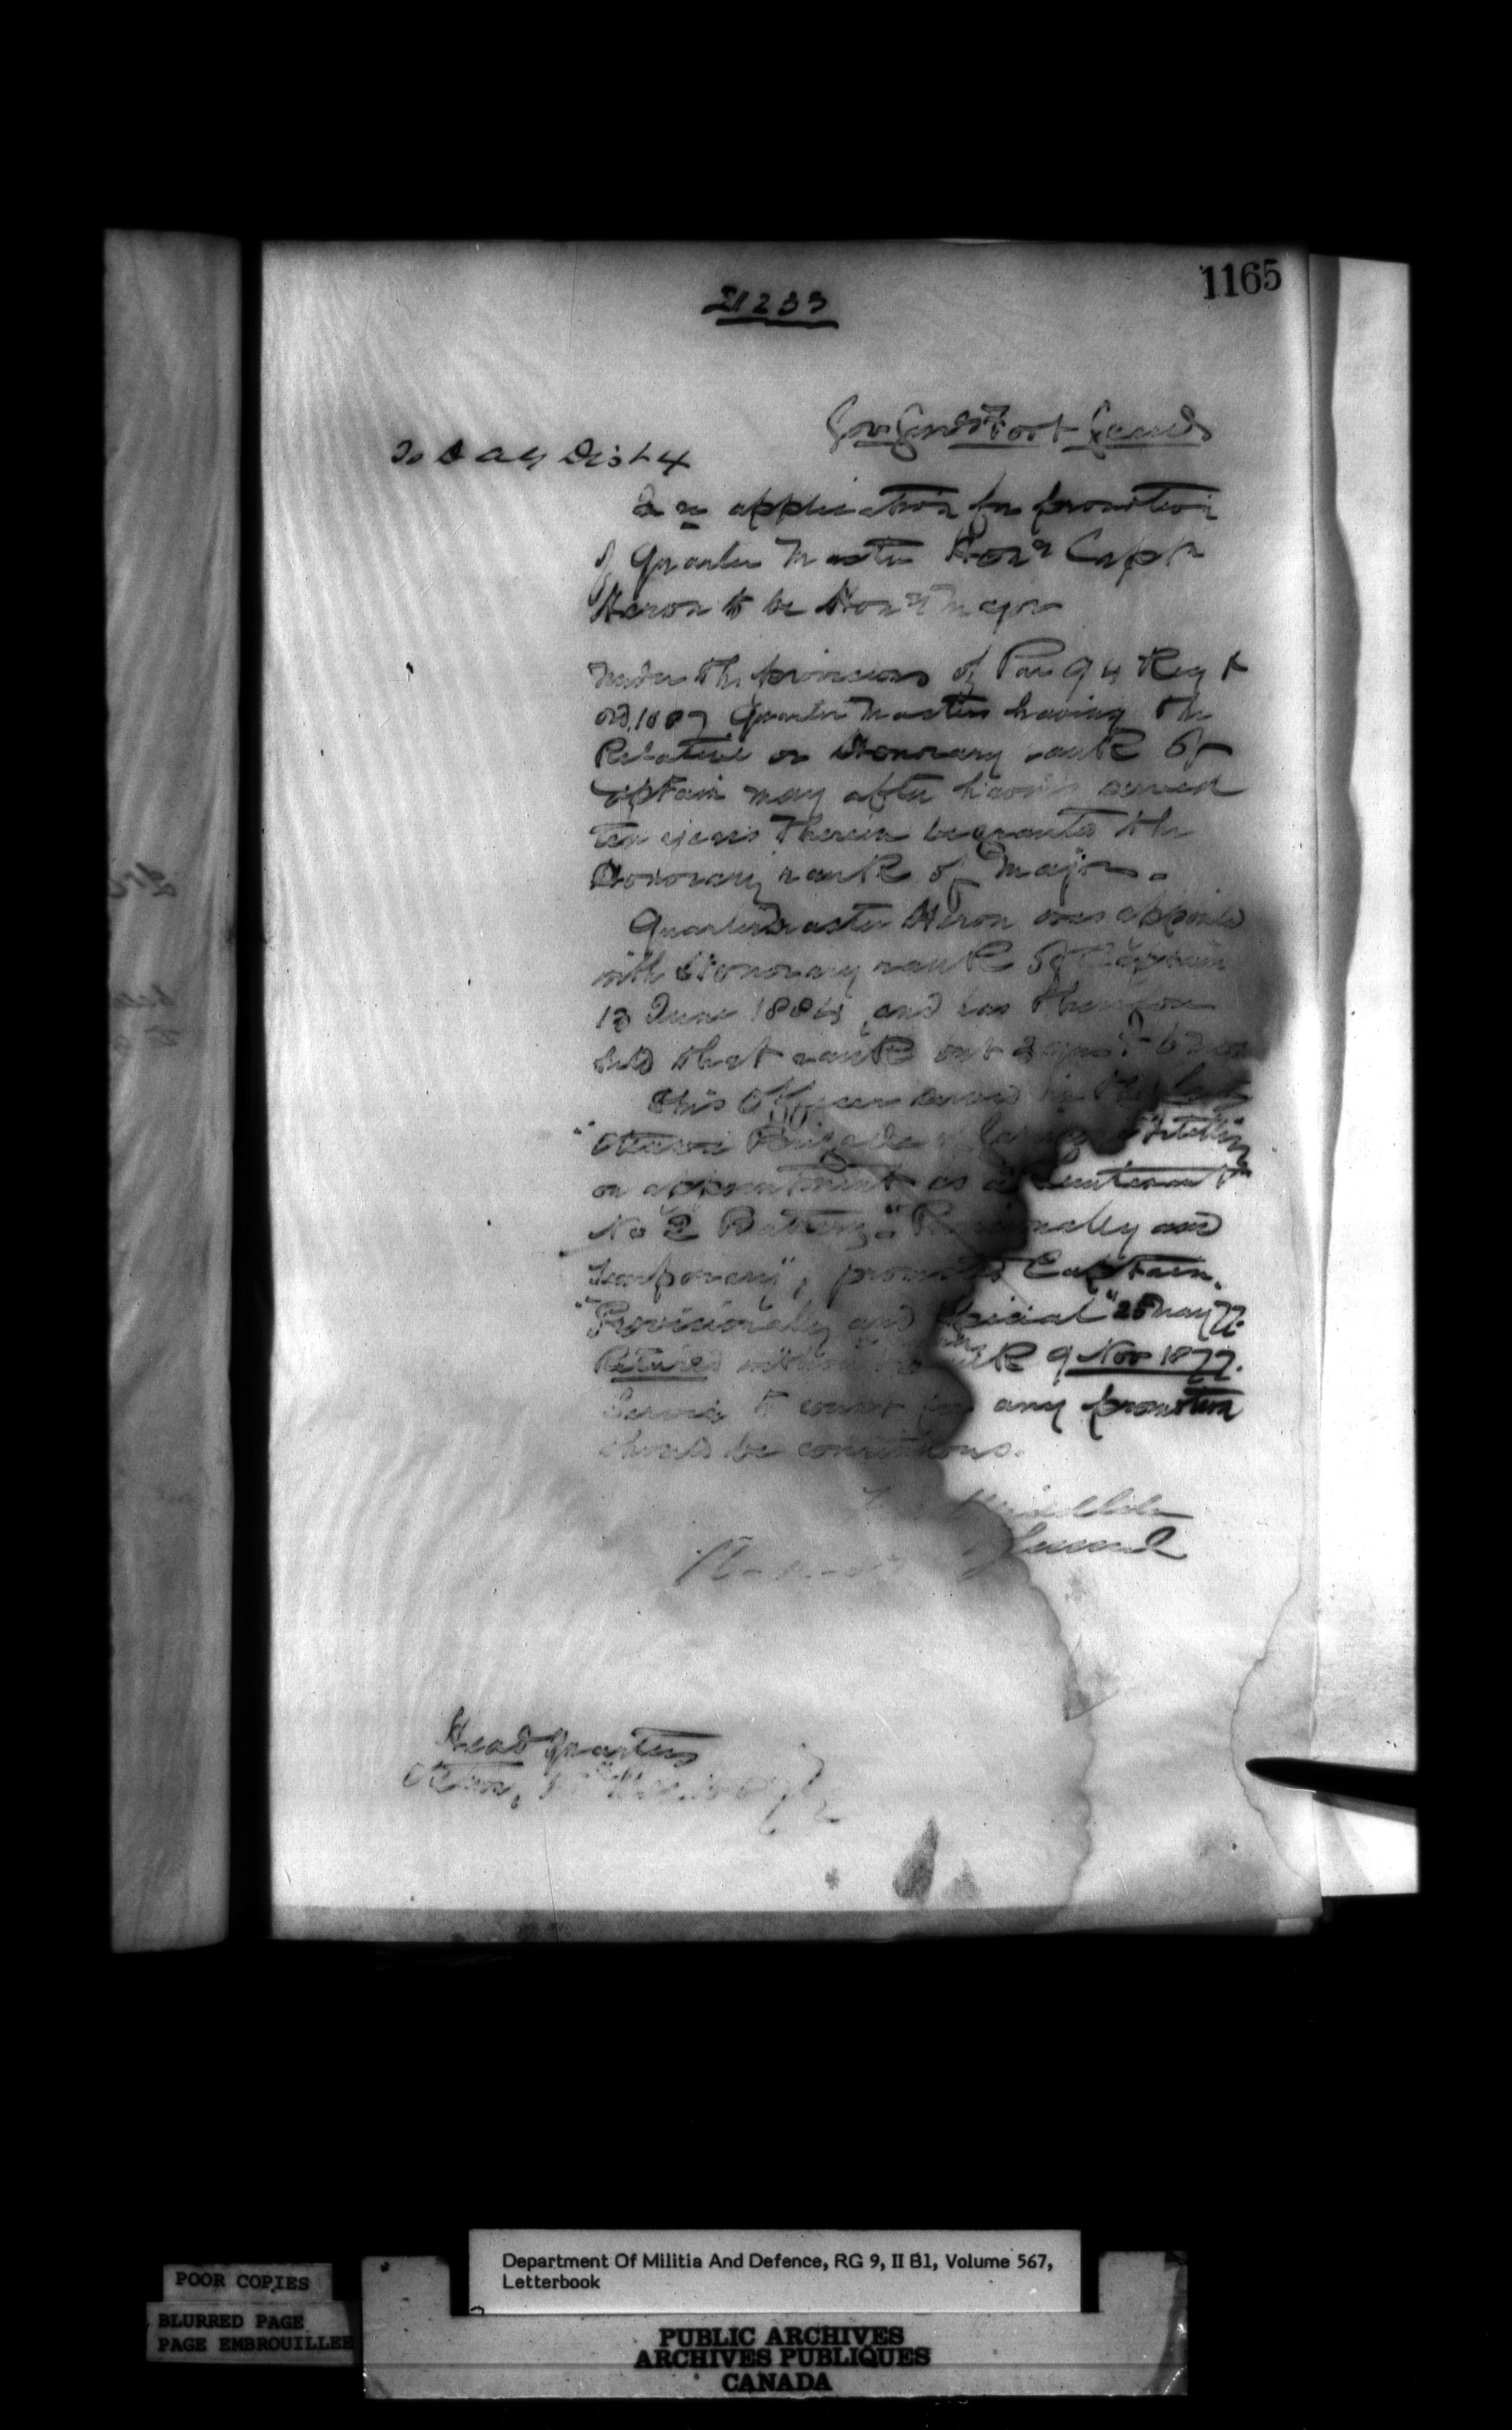 1165
21233
Gov. Genls Foot Guards
To D A G Dist 4
In re application for promotion
of Quarter Master Hony Captn
Heron to be Hony Major
Under the provisions of Par 94 Reg &
Ord. 1887 Quarter Masters having the
Relative or Honorary rank of
Captain may after having served
ten years therein be granted the
Honorary rank of Major.
Quartermaster Heron was appointed
with Honorary rank of Captain
13 June 1884 and has therefore
held that rank but 3
This Officer served in the
"Ottawa Brigade of Garrison Artillery
on appointment as Lieutenant
No 2 Battery "Provisionally and
temporary", promoted Captain.
"Provisionally and Special" 25 May 77.
Retired without rank 9 Nov 1877.
Service to count for any promotion
should be continuous.
Fred Middleton
General
Head Quarters
Ottawa,
Department Of Militia And Defence, RG 9, II B1, Volume 567,
Letterbook
POOR COPIES
BLURRED PAGE
PAGE EMBROUILLEE
PUBLIC ARCHIVES
ARCHIVES PUBLIQUES
CANADA